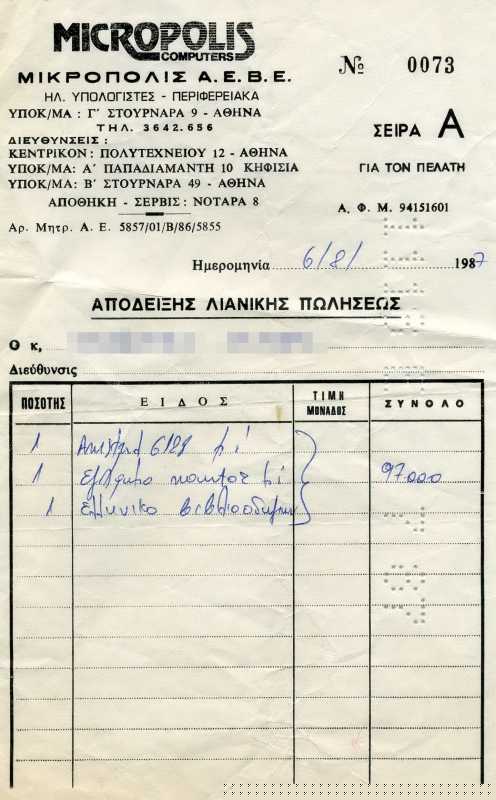 MICROPOLIS
COMPUTERS
ΜΙΚΡΟΠΟΛΙΣ Α.Ε.Β.Ε.
ΗΛ. ΥΠΟΛΟΓΙΣΤΕΣ - ΠΕΡΙΦΕΡΕΙΑΚΑ
ΥΠΟΚ/ΜΑ : Γ΄ ΣΤΟΥΡΝΑΡΗ 9 - ΑΘΗΝΑ
ΤΗΛ. 3642.656
ΔΙΕΥΘΥΝΣΕΙΣ :
ΚΕΝΤΡΙΚΟΝ: ΠΟΛΥΤΕΧΝΕΙΟΥ 12 - ΑΘΗΝΑ
ΥΠΟΚ/ΜΑ: Α΄ ΠΑΠΑΔΙΑΜΑΝΤΗ 10 ΚΗΦΙΣΙΑ
ΥΠΟΚ/ΜΑ: Β΄ ΣΤΟΥΡΝΑΡΗ 49 - ΑΘΗΝΑ
ΑΠΟΘΗΚΗ - ΣΕΡΒΙΣ: ΝΟΤΑΡΑ 8
Αρ. Μητρ. Α. Ε. 5857/01/Β/86/5855
№ 0073
ΣΕΙΡΑ Α
ΓΙΑ ΤΟΝ ΠΕΛΑΤΗ
Α. Φ. Μ. 94151601
Ημερομηνία 6/8/ 1987
ΑΠΟΔΕΙΞΗΣ ΛΙΑΝΙΚΗΣ ΠΩΛΗΣΕΩΣ
Ο κ,
Διεύθυνσις
ΠΟΣΟΤΗΣ ΕΙΔΟΣ ΤΙΜΗ ΜΟΝΑΔΟΣ ΣΥΝΟΛΟ
1 6128 μί
1 μί 97.000
1 Ελληνικό